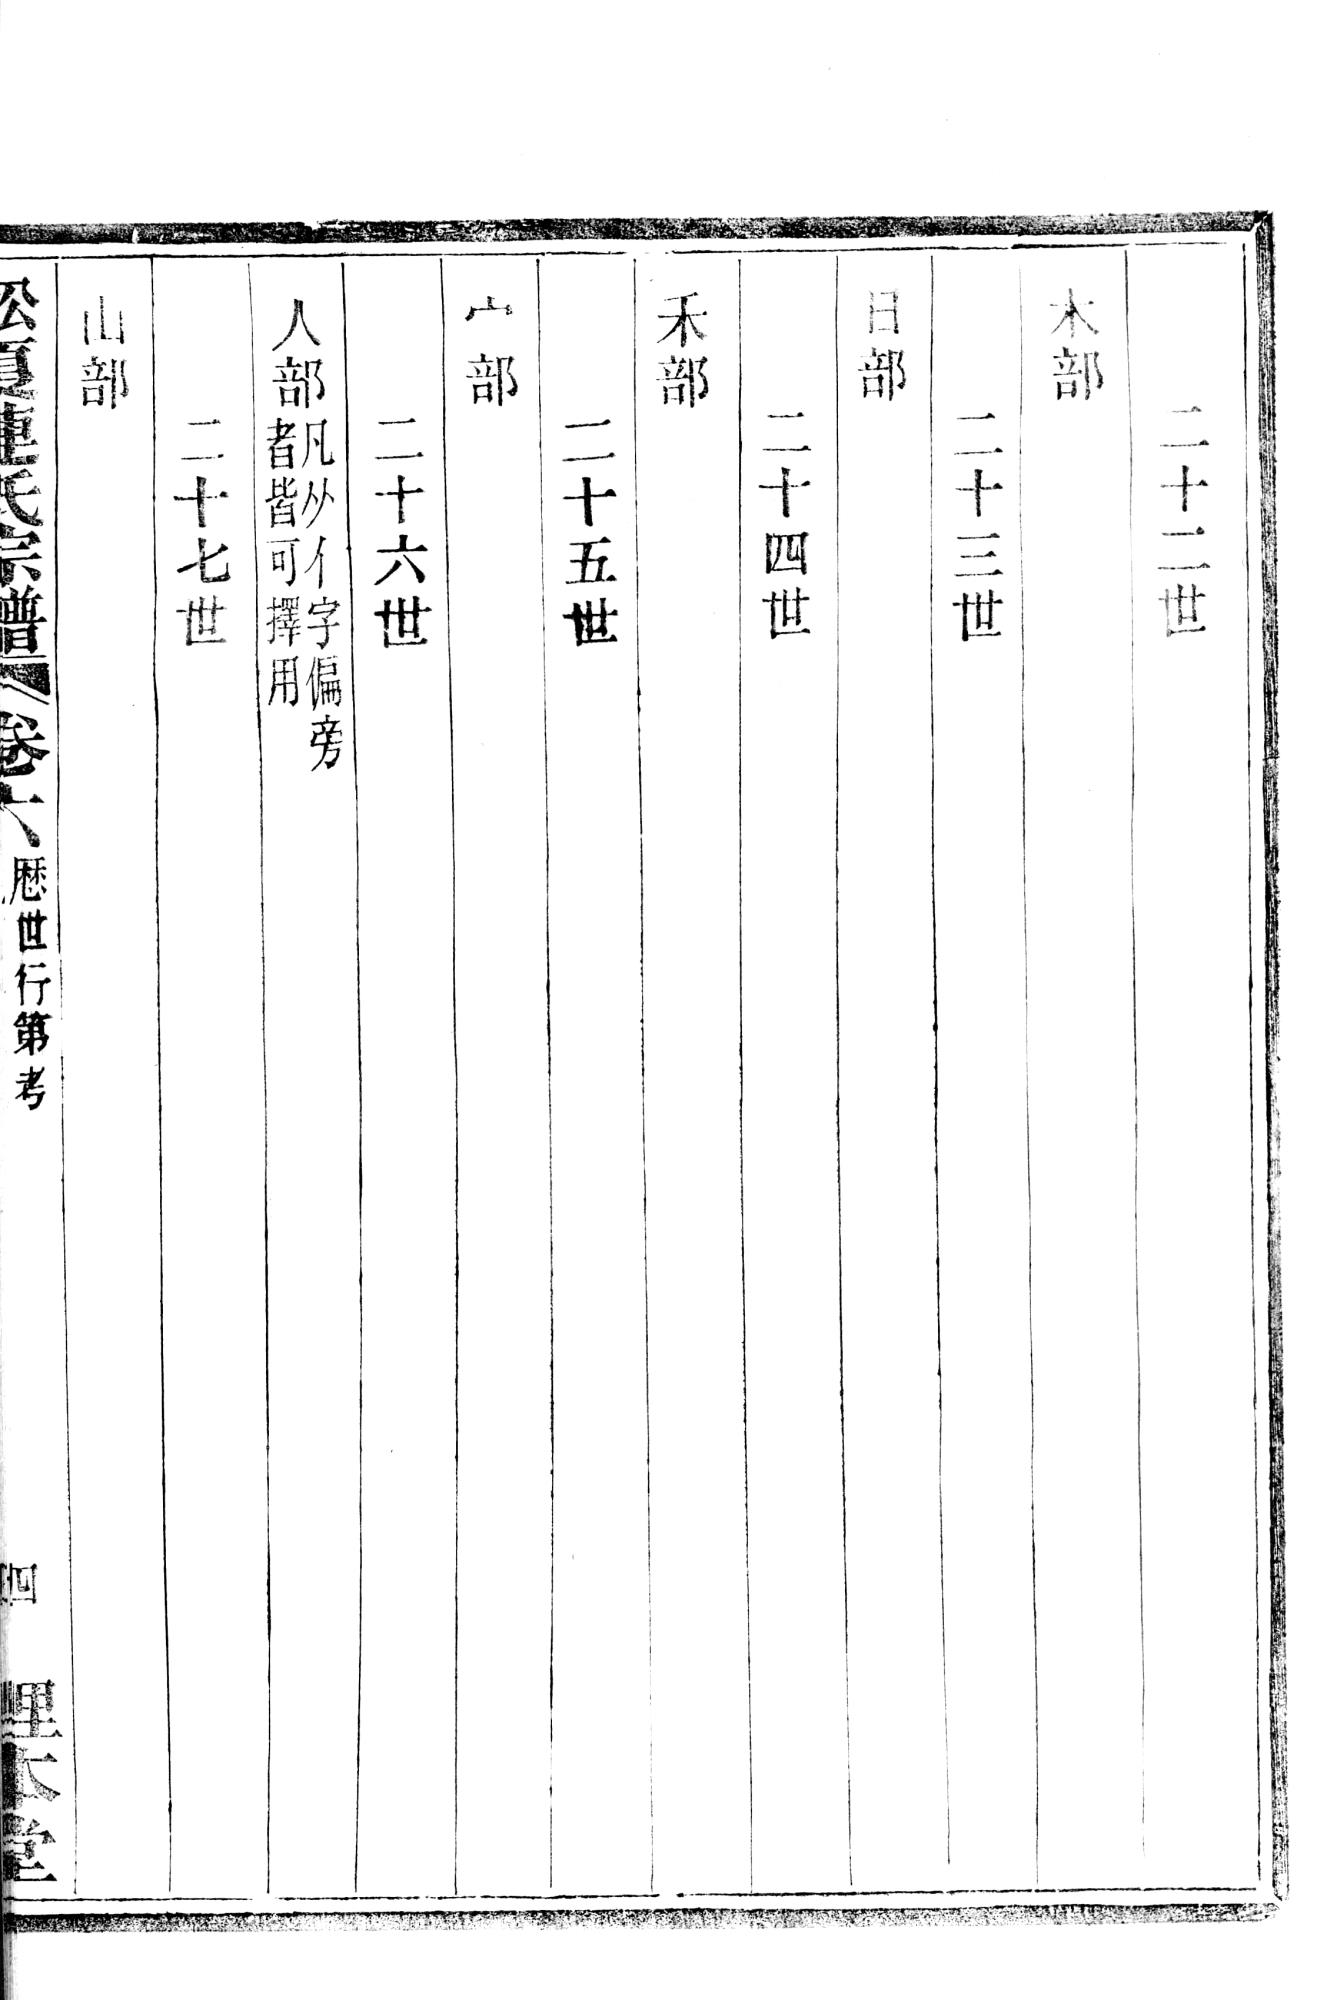 二十二世
木部
二十三世
日部
二十四世
禾部
二十五世
宀部
二十六世
人部
凡从亻字偏旁
者皆可擇用
二十七世
山部
松夏連氏宗譜
卷六
厯世行第考
四
本堂